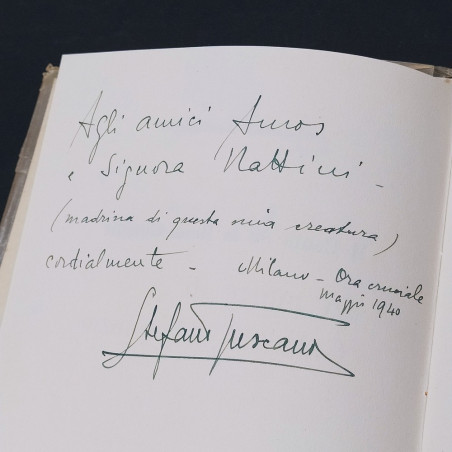 Agli amici Amos
e Signora Nattini -
(madrina di questa mia creatura)
cordialmente - Milano - Ora cruciale
maggio 1940
Stefano Fuscano